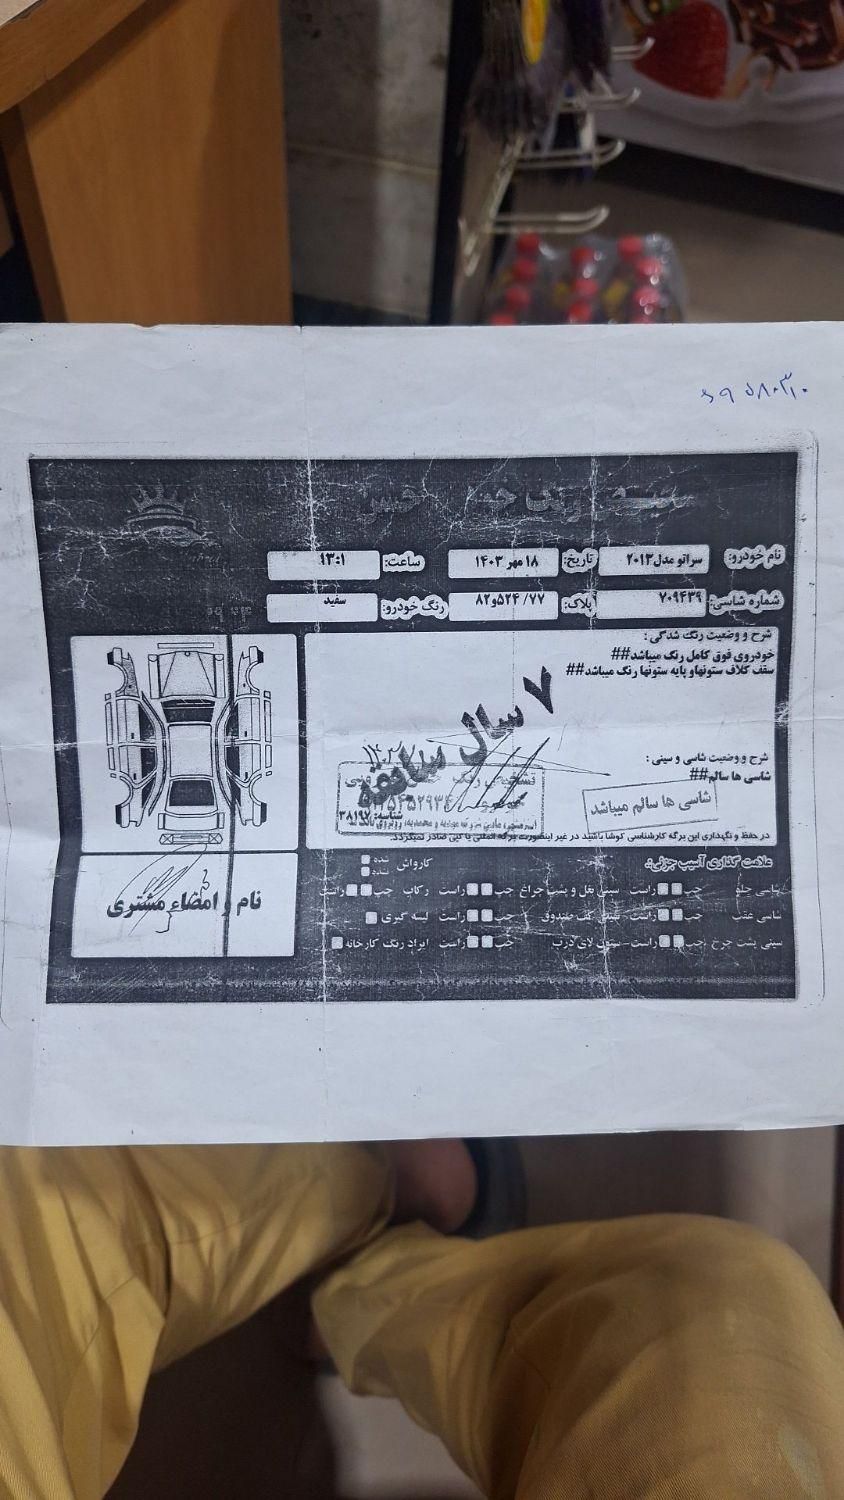 نام خودرو: سراتو مدل ۲۰۱۳ تاریخ: ۱۸ مهر ۱۴۰۳ ساعت: ۱۳:۱
شماره شاسی: ۷۰۹۴۳۹ پلاک: ۷۷/ ۵۲۴و۸۲ رنگ خودرو: سفید
شرح و وضعیت رنگ شدگی :
خودروی فوق کامل رنگ میباشد##
سقف کلاف ستونهاو پایه ستونها رنگ میباشد##
۷ سال سابقه
شرح و وضعیت شاسی و سینی :
شاسی ها سالم##
شاسی ها سالم میباشد
تشخیص رنگ
شناسه: ۳۸۱۹۷
در حفظ و نگهداری این برگه کارشناسی کوشا باشید در غیر اینصورت برگه المثنی یا کپی صادر نمیگردد.
علامت گذاری آسیب جزئی:
کارواش شده نشده
شاسی جلو چپ راست سینی بغل و پشت چراغ چپ راست رکاب چپ راست
شاسی عقب چپ راست سینی کف صندوق چپ راست لیسه گیری
سینی پشت چرخ چپ راست ستون لای درب چپ راست ایراد رنگ کارخانه
نام و امضاء مشتری